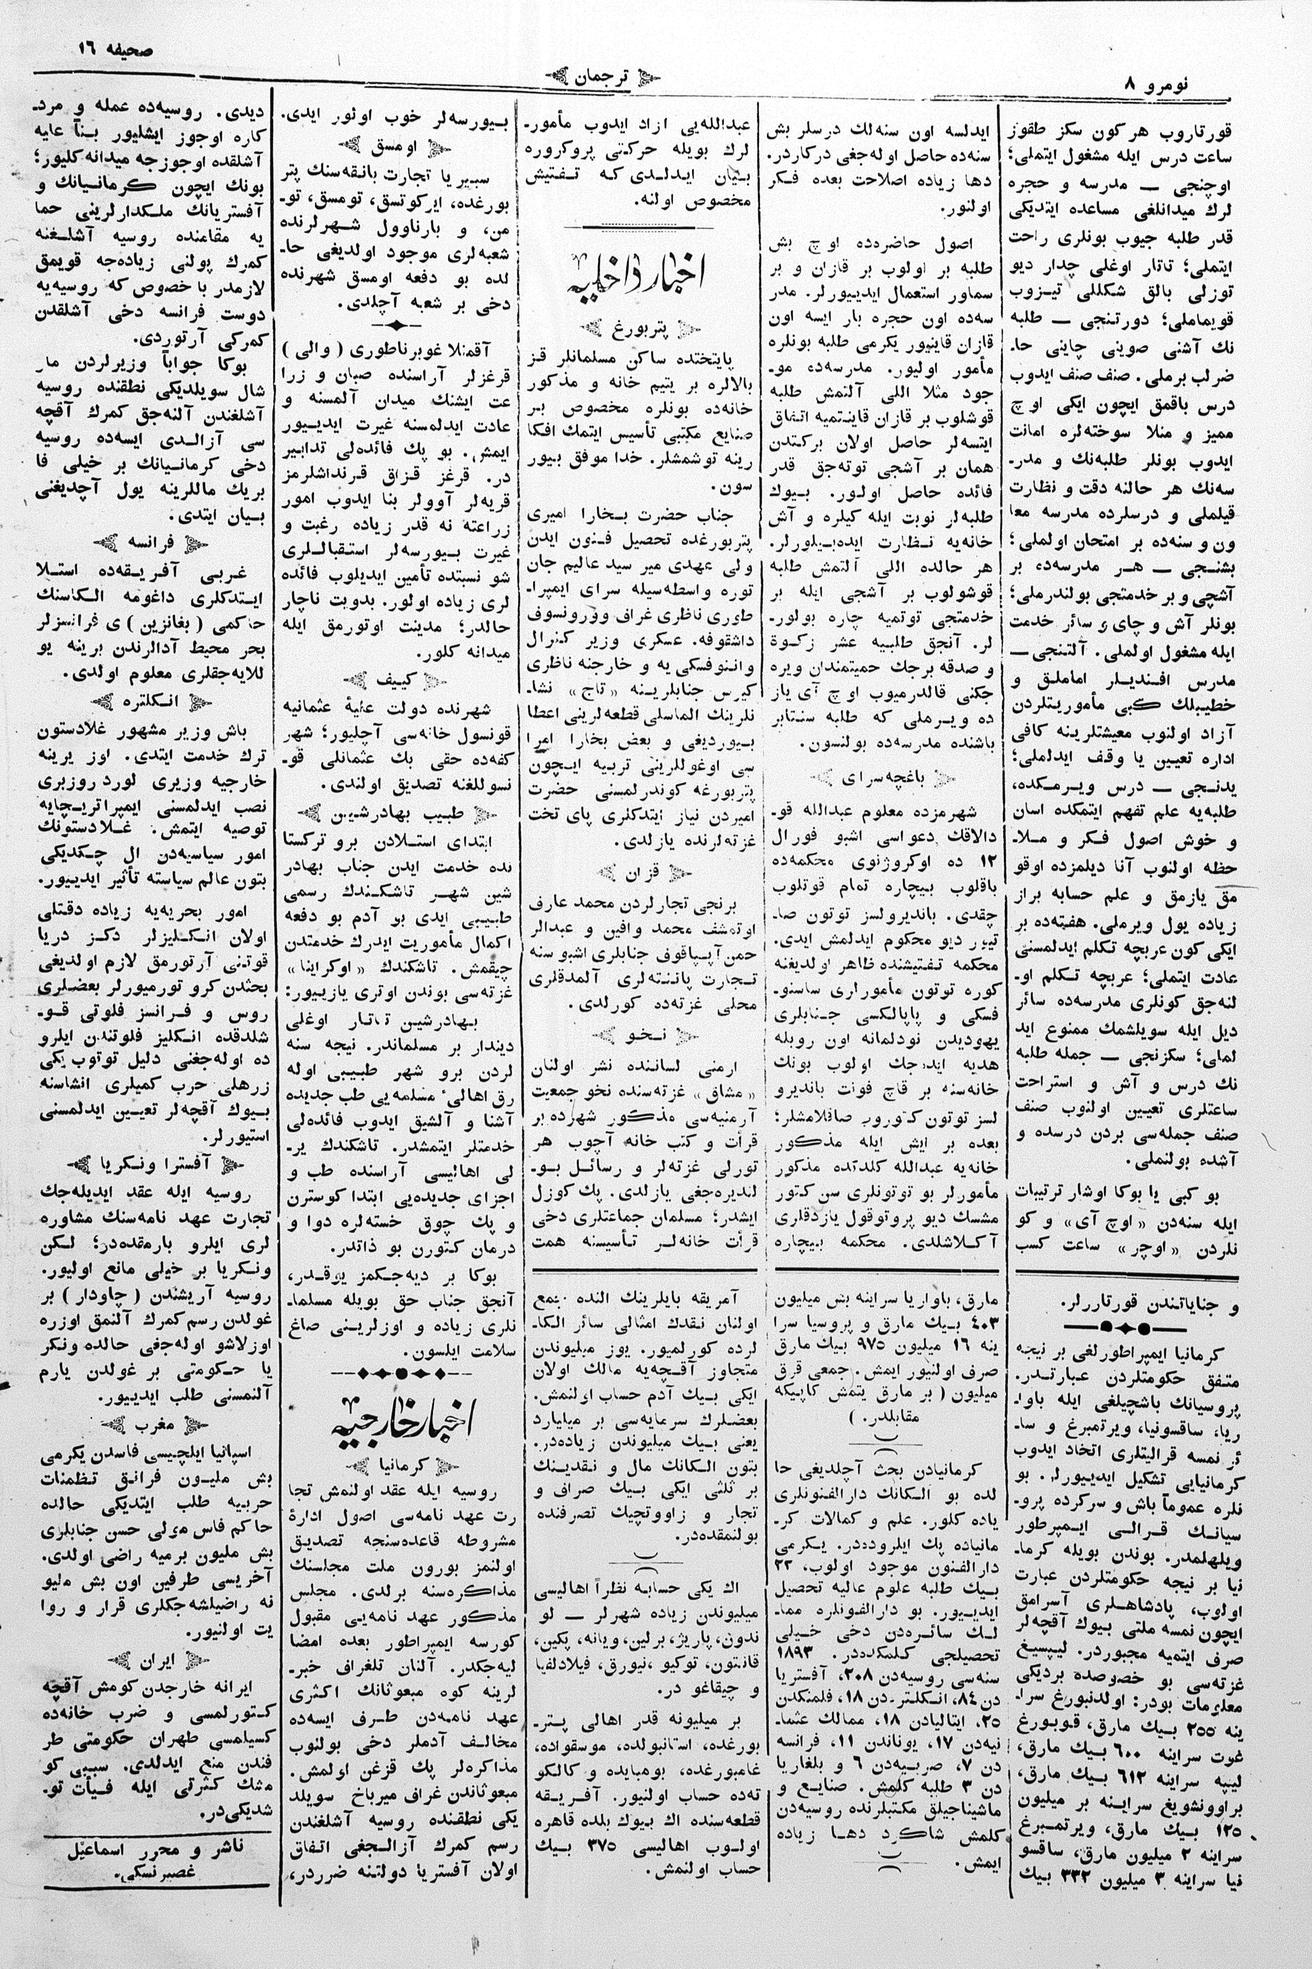 نومرو ٨
ترجمان
صحیفه ١٦
قورتاروب هر كون سكز طقوز
ساعت درس ایله مشغول ایتملی؛
اوچنجی — مدرسه و حجره
لرك میدانلغی مساعده ایتدیكی
قدر طلبه جیوب بونلری راحت
ایتملی؛ تاتار اوغلی چدار دیو
توزلی بالق شكللی تیزوب
قویماملی؛ دورتنجی — طلبه
نك آشنی صوینی چاینی حا-
ضرلب برملی. صنف صنف ایدوب
درس باقمق ایچون ایكی اوچ
ممیز و منلا سوخته‌لره امانت
ایدوب بونلر طلبه‌نك و مدر-
سه‌نك هر حالنه دقت و نظارت
قیلملی و درسلرده مدرسه معا
ون و سنه‌ده بر امتحان اولملی؛
بشنجی — هر مدرسه‌ده بر
آشچی و بر خدمتجی بولندرملی؛
بونلر آش و چای و سائر خدمت
ایله مشغول اولملی. آلتنجی —
مدرس افندیلر اماملق و
خطیبلك كبی مأموریتلردن
آزاد اولنوب معیشتلرینه كافی
اداره تعیین یا وقف ایدلملی؛
یدنجی — درس ویرمكده،
طلبه‌یه علم تفهم ایتمكده اسان
و خوش اصول فكر و ملا-
حظه اولنوب آنا دیلمزده اوقو
مق یازمق و علم حسابه براز
زیاده یول ویرملی. هفته‌ده بر
ایكی كون عربچه تكلم ایدلمسنی
عادت ایتملی؛ عربچه تكلم او-
لنه‌جق كونلری مدرسه‌ده سائر
دیل ایله سویلشمك ممنوع اید
لملی؛ سكزنجی — جمله طلبه
نك درس و آش و استراحت
ساعتلری تعیین اولنوب صنف
صنف جمله‌سی بردن درسده و
آشده بولنملی.
بو كبی یا بوكا اوشار ترتیبات
ایله سنه‌دن «اوچ آی» و كو
نلردن «اوچر» ساعت كسب
ایدلسه اون سنه‌لك درسلر بش
سنه‌ده حاصل اوله‌جغی دركاردر.
دها زیاده اصلاحت بعده فكر
اولنور.
اصول حاضره‌ده اوچ بش
طلبه بر اولوب بر قازان و بر
سماور استعمال ایدییورلر. مدر
سه‌ده اون حجره بار ایسه اون
قازان قاینیور یكرمی طلبه بونلره
مأمور اولیور. مدرسه‌ده مو-
جود مثلا اللی آلتمش طلبه
قوشلوب بر قازان قاینتمیه اتفاق
ایتسه‌لر حاصل اولان بركتدن
همان بر آشجی توته‌جق قدر
فائده حاصل اولور. بیوك
طلبه‌لر نوبت ایله كیلره و آش
خانه‌یه نظارت ایده‌بیلورلر.
هر حالده اللی آلتمش طلبه
قوشولوب بر آشجی ایله بر
خدمتجی توتمیه چاره بولور-
لر. آنجق طلبه‌یه عشر زكوة
و صدقه برجك حمیتمندان ویره
جكنی قالدرمیوب اوچ آی یاز
ده ویرملی كه طلبه سنتابر
باشنده مدرسه‌ده بولنسون.
باغچه‌سرای
شهرمزده معلوم عبدالله قو-
دالاقك دعواسی اشبو فورال
١٢ ده اوكروژنوی محكمه‌ده
باقلوب بیچاره تمام قوتلوب
چقدی. باندیرولسز توتون صا-
تیور دیو محكوم ایدلمش ایدی.
محكمه تفتیشنده ظاهر اولدیغنه
كوره توتون مأمورلری ساسنو-
فسكی و پاپالكسی جنابلری
یهودیدن نودلمانه اون روبله
هدیه ایده‌جك اولوب بونك
خانه‌سنه بر قاچ فونت باندیرو
لسز توتون كتوروب صاقلامشلر؛
بعده بر ایش ایله مذكور
خانه‌یه عبدالله كلدكده مذكور
مأمورلر بو توتونلری سن كتور
مشسك دیو پروتوقول یازدقلری
آكلاشلدی. محكمه بیچاره
عبدالله‌یی ازاد ایدوب مأمور-
لرك بویله حركتی پروكروره
بیان ایدلدی كه تفتیش
مخصوص اولنه.
اخبار داخلیه
پتربورغ
پایتختده ساكن مسلمانلر قز
بالالره بر یتیم خانه و مذكور
خانه‌ده بونلره مخصوص بر
صنایع مكتبی تأسیس ایتمك افكا
رینه توشمشلر. خدا موفق بیور
سون.
جناب حضرت بخارا امیری
پتربورغده تحصیل فنون ایدن
ولی عهدی میر سید عالیم جان
توره واسطه‌سیله سرای ایمپرا-
طوری ناظری غراف وورونسوف
داشقوفه. عسكری وزیر كنرال
وانوفسكی یه و خارجنه ناظری
كیرس جنابلرینه «تاج» نشا-
نلرینك الماسلی قطعه‌لرینی اعطا
بیوردیغی و بعض بخارا امرا
سی اوغوللرینی تربیه ایچون
پتربورغه كوندرلمسنی حضرت
امیردن نیاز ایتدكلری پای تخت
غزته‌لرنده یازلدی.
قزان
برنجی تجارلردن محمد عارف
اوتمشف محمد وافین و عبدالر
حمن آیپاقوف جنابلری اشبو سنه
تجارت پاتنته‌لری آلمدقلری
محلی غزته‌ده كورلدی.
نخو
ارمنی لساننده نشر اولنان
«مشاق» غزته‌سنده نخو جمعیت
آرمنیه‌سی مذكور شهرده بر
قرأت و كتب خانه آچوب هر
تورلی غزته‌لر و رسائل بو-
لندیره‌جغی یازلدی. پك كوزل
ایشدر؛ مسلمان جماعتلری دخی
قرأت خانه‌لر تأسیسنه همت
بیورسه‌لر خوب اولور ایدی.
اومسق
سیبر یا تجارت بانقه‌سنك پتر
بورغده، ایركوتسق، تومسق، تو-
من، و بارناوول شهرلرنده
شعبه‌لری موجود اولدیغی حا-
لده بو دفعه اومسق شهرنده
دخی بر شعبه آچلدی.
آقمتلا غوبرناطوری (والی)
قرغزلر آراسنده صبان و زرا
عت ایشنك میدان آلمسنه و
عادت ایدلمسنه غیرت ایدییور
ایمش. بو پك فائده‌لی تدابیر
در. قرغز قزاق قرنداشلرمز
قریه‌لر آوولر بنا ایدوب امور
زراعته نه قدر زیاده رغبت و
غیرت بیورسه‌لر استقباللری
شو نسبتده تأمین ایدیلوب فائده
لری زیاده اولور. بدویت ناچار
حالدر؛ مدنیت اوتورمق ایله
میدانه كلور.
كییف
شهرنده دولت علیۀ عثمانیه
قونسول خانه‌سی آچلیور؛ شهر
كفه‌ده حقی بك عثمانلی قو-
نسوللغنه تصدیق اولندی.
طبیب بهادرشین
ابتدای استلادن برو تركستا
نده خدمت ایدن جناب بهادر
شین شهر تاشكندك رسمی
طبیبی ایدی بو آدم بو دفعه
اكمال مأموریت ایدرك خدمتدن
چیقمش. تاشكندك «اوكراینا»
غزته‌سی بوندن اوتری یازییور:
بهادرشین تاتار اوغلی
دیندار بر مسلماندر. نیجه سنه
لردن برو شهر طبیبی اوله
رق اهالیٔ مسلمه‌یی طب جدیده
آشنا و آلشیق ایدوب فائده‌لی
خدمتلر ایتمشدر. تاشكندك یر-
لی اهالیسی آراسنده طب و
اجزای جدیده‌یی ابتدا كوسترن
و پك چوق خسته‌لره دوا و
درمان كتورن بو ذاتدر.
بوكا بر دیه‌جكمز یوقدر،
آنجق جناب حق بویله مسلما-
نلری زیاده و اوزلرینی صاغ
سلامت ایلسون.
اخبار خارجیه
كرمانیا
روسیه ایله عقد اولنمش تجا
رت عهد نامه‌سی اصول ادارۀ
مشروطه قاعده‌سنجه تصدیق
اولنمز بورون ملت مجلسنك
مذاكره‌سنه برلدی. مجلس
مذكور عهد نامه‌یی مقبول
كورسه ایمپراطور بعده امضا
لیه‌جكدر. آلنان تلغراف خبر-
لرینه كوه مبعوثانك اكثری
عهد نامه‌دن طرف ایسه‌ده
مخالف آدملر دخی بولنوب
مذاكره‌لر پك قزغن اولمش.
مبعوثاندن غراف میرباخ سویلد
یكی نطقنده روسیه آشلغندن
رسم كمرك آزالجغی اتفاق
اولان آفستریا دولتنه ضرردر،
دیدی. روسیه‌ده عمله و مرد-
كاره اوجوز ایشلیور بناً علیه
آشلقده اوجوزجه میدانه كلیور؛
بونك ایچون كرمانیانك و
آفستریانك ملكدارلرینی حما
یه مقامنده روسیه آشلغنه
كمرك پولنی زیاده‌جه قویمق
لازمدر با خصوص كه روسیه‌یه
دوست فرانسه دخی آشلقدن
كمركی آرتوردی.
بوكا جواباً وزیرلردن مار
شال سویلدیكی نطقنده روسیه
آشلغندن آلنه‌جق كمرك آقچه
سی آزالدی ایسه‌ده روسیه
دخی كرمانیانك بر خیلی فا
بریك ماللرینه یول آچدیغنی
بیان ایتدی.
فرانسه
غربی آفریقه‌ده استلا
ایتدكلری داغومه الكاسنك
حاكمی (بغانزین) ی فرانسزلر
بحر محیط آدالرندن برینه یو
للایه‌جقلری معلوم اولدی.
انكلتره
باش وزیر مشهور غلادستون
ترك خدمت ایتدی. اوز یرینه
خارجیه وزیری لورد روزبری
نصب ایدلمسنی ایمپراتریچایه
توصیه ایتمش. غلادستونك
امور سیاسیه‌دن ال چكدیكی
بتون عالم سیاسته تأثیر ایدییور.
امور بحریه‌یه زیاده دقتلی
اولان انكلیزلر دكز دریا
قوتنی آرتورمق لازم اولدیغی
بحثدن كرو تورمیورلر بعضلری
روس و فرانسز فلوتی قو-
شلدقده انكلیز فلوتندن ایلرو
ده اوله‌جغنی دلیل توتوب یكی
زرهلی حرب كمیلری انشاسنه
بیوك آقچه‌لر تعیین ایدلمسنی
استیورلر.
آفسترا ونكریا
روسیه ایله عقد ایدیله‌جك
تجارت عهد نامه‌سنك مشاوره
لری ایلرو بارمقده‌در؛ لكن
ونكریا بر خیلی مانع اولیور.
روسیه آریشندن (چاودار) بر
غولدن رسم كمرك آلنمق اوزره
اوزلاشو اوله‌جغی حالده ونكر
یا حكومتی بر غولدن یارم
آلنمسنی طلب ایدییور.
مغرب
اسپانیا ایلچیسی فاسدن یكرمی
بش ملیون فرانق تظمنات
حربیه طلب ایتدیكی حالده
حاكم فاس مولی حسن جنابلری
بش ملیون برمیه راضی اولدی.
آخریسی طرفین اون بش ملیو
نه راضیلشه‌جكلری قرار و روا
یت اولنیور.
ایران
ایرانه خارجدن كومش آقچه
كتورلمسی و ضرب خانه‌ده
كسیلمسی طهران حكومتی طر
فندن منع ایدلدی. سببی كو
مشك كثرتی ایله فیأت تو-
شدیكی‌در.
ناشر و محرر اسماعیل
غصپرنسكی.
و جنایاتندن قورتاررلر.
كرمانیا ایمپراطورلغی بر نیجه
متفق حكومتلردن عبارتدر.
پروسیانك باشچیلغی ایله باوا-
ریا، ساقسونیا، ویرتمبرغ و سا-
ئر نمسه قرالیتلری اتحاد ایدوب
كرمانیایی تشكیل ایدییورلر. بو
نلره عموماً باش و سركرده پرو-
سیانك قرالی ایمپرطور
ویلهلمدر. بوندن بویله كرما-
نیا بر نیجه حكومتلردن عبارت
اولوب، پادشاهلری آسرامق
ایچون نمسه ملتی بیوك آقچه‌لر
صرف ایتمیه مجبوردر. لیپسیغ
غزته‌سی بو خصوصده بردیكی
معلومات بودر: اولدنبورغ سرا-
ینه ٢٥٥ بیك مارق، قوبورغ
غوت سراینه ٦٠٠ بیك مارق،
لیپه سراینه ٦١٢ بیك مارق،
براوونشویغ سراینه بر میلیون
١٢٥ بیك مارق، ویرتمبرغ
سراینه ٢ میلیون مارق، ساقسو
نیا سراینه ٣ میلیون ٣٣٢ بیك
مارق، باواریا سراینه بش میلیون
٤٠٣ بیك مارق و پروسیا سرا
ینه ١٦ میلیون ٩٧٥ بیك مارق
صرف اولنیور ایمش. جمعی قرق
میلیون (بر مارق یتمش كاپیكه
مقابلدر.)
كرمانیادن بحث آچلدیغی حا
لده بو الكانك دارالفنونلری
یاده كلور. علم و كمالات كر-
مانیاده پك ایلروده‌در. یكرمی
دارالفنون موجود اولوب، ٢٣
بیك طلبه علوم عالیه تحصیل
ایدییور. بو دارالفونلره مما-
لك سائره‌دن دخی خیلی
تحصیلجی كلمكده‌در. ١٨٩٣
سنه‌سی روسیه‌دن ٢٠٨، آفستریا
دن ٨٤، انكلتره‌دن ١٨، فلمنكدن
٢٥، ایتالیادن ١٨، ممالك عثما-
نیه‌دن ١٧، یوناندن ١١، فرانسه
دن ٧، صربیه‌دن ٦ و بلغاریا
دن ٣ طلبه كلمش. صنایع و
ماشیناجیلق مكتبلرنده روسیه‌دن
كلمش شاكرد دها زیاده
ایمش.
آمریقه بایلرینك النده جمع
اولنان نقدك امثالی سائر الكا-
لرده كورلمیور. یوز میلیوندن
متجاوز آقچه‌یه مالك اولان
ایكی بیك آدم حساب اولنمش.
بعضلرك سرمایه‌سی بر میلیارد
یعنی بیك میلیوندن زیاده‌در.
بتون الكانك مال و نقدینك
بر ثلثی ایكی بیك صراف و
تجار و زاوودچیك تصرفنده
بولنمقده‌در.
اك یكی حسابه نظراً اهالیسی
میلیوندن زیاده شهرلر — لو
ندون، پاریژ، برلین، ویانه، پكین،
قانتون، توكیو، نیورق، فیلادلفیا
و چیقاغو در.
بر میلیونه قدر اهالی پتر-
بورغده، استانبولده، موسقواده،
غامبورغده، بومبایده و كالكو
ته‌ده حساب اولنیور. آفریقه
قطعه‌سنده اك بیوك بلده قاهره
اولوب اهالیسی ٣٧٥ بیك
حساب اولنمش.